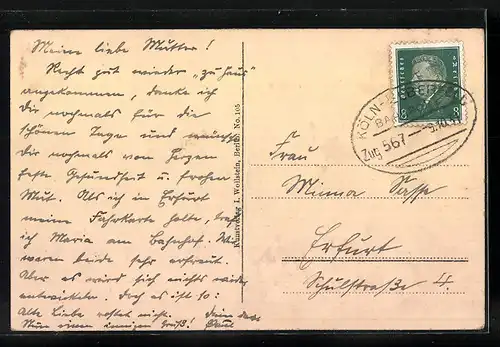 Meine liebe Mutter!
Recht gut wieder "zu Haus"
angekommen, danke ich
Dir nochmals für die
schönen Tage und wünsche
dir nochmals von Herzen
feste Gesundheit u. frohen
Mut. Als ich in Erfurt
meine Fahrkarte holte, traf
ich Maria am Bahnhof. Wir
waren beide sehr erfreut.
Aber es wird sich nichts wieder
entwickeln. Doch es ist so:
Alte Liebe rostet nicht. Dein
Nun einen innigen Gruß! Paul
Kunstverlag J. Wollstein, Berlin No. 105
DEUTSCHES REICH
8 8
KÖLN-
BAHNPOST
Zug 567
Frau
Minna Sasse
Erfurt
Schulstraße 4